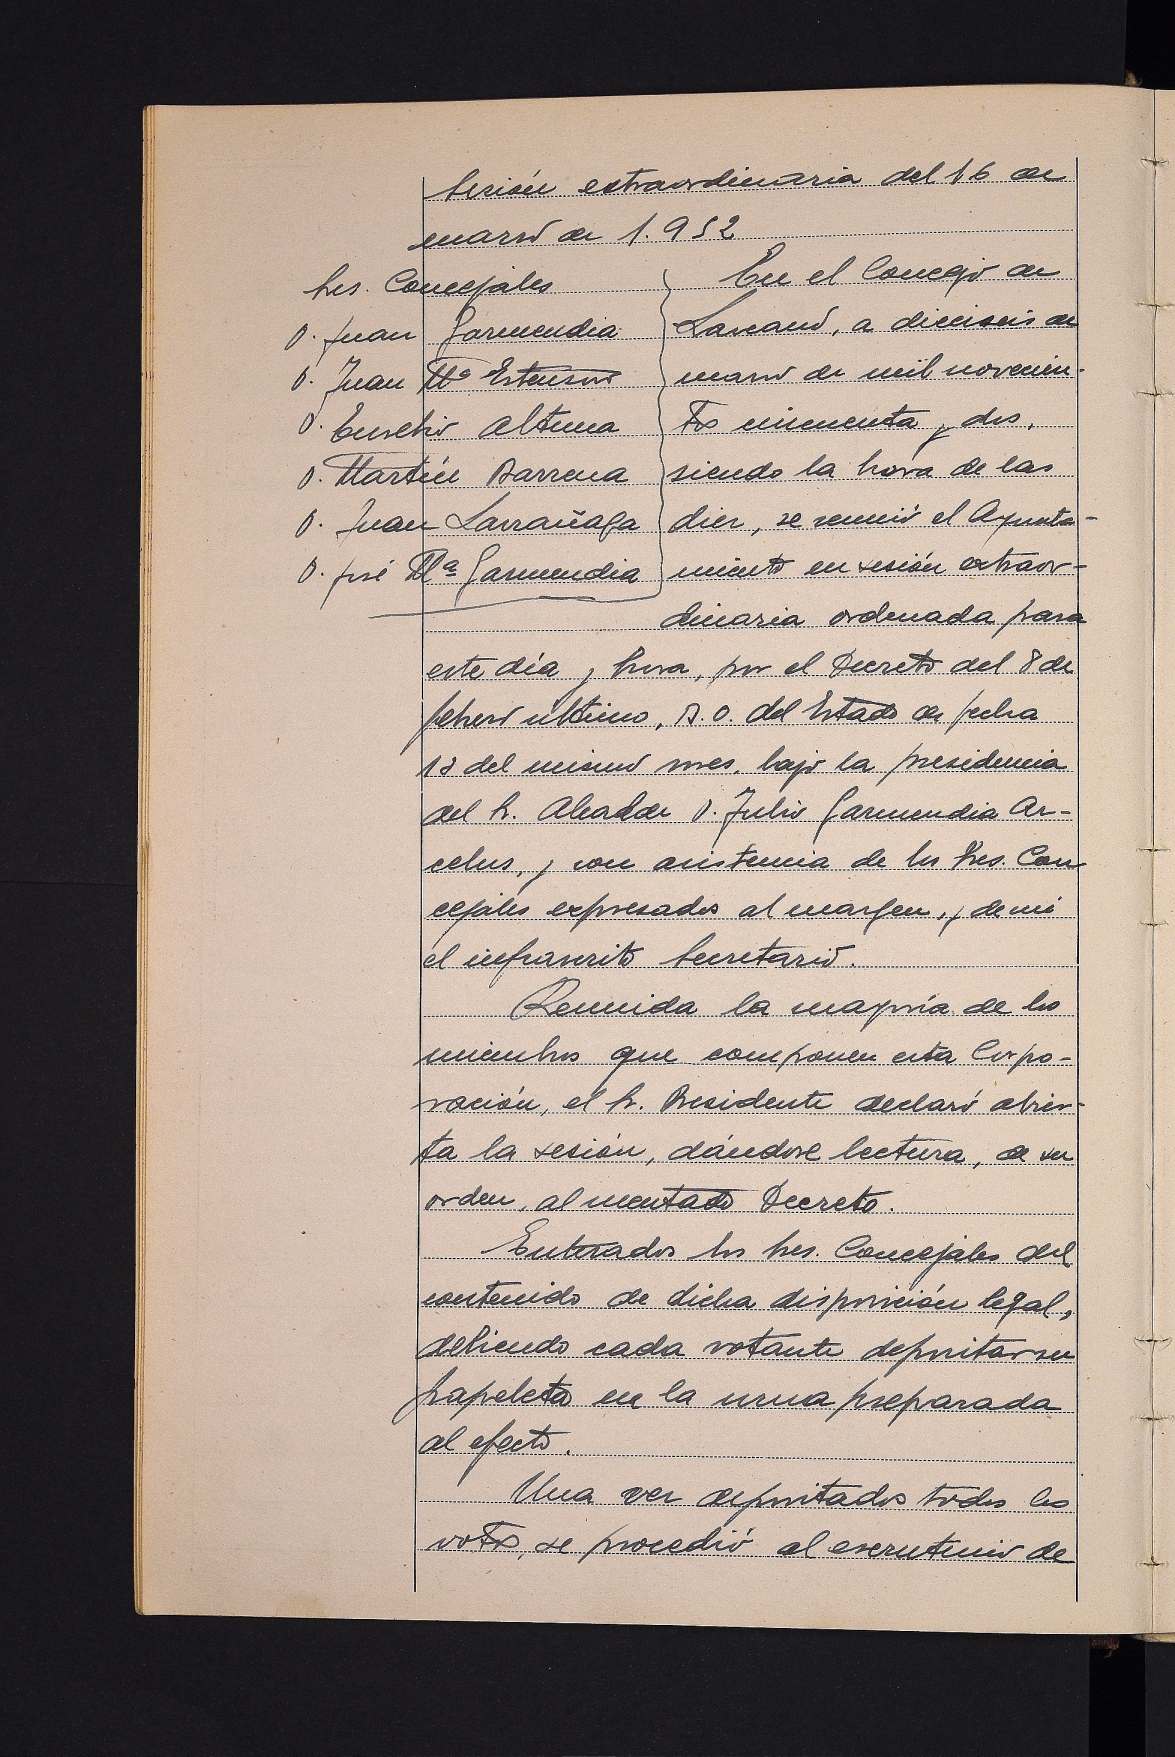 Sesión extraordinaria del 16 de
marzo de 1.952
Sres. Concejales
D. Juan Garmendia
D. Juan Mª Estensoro
D. Eusebio Altuna
D. Martín Barrena
D. Juan Larrañaga
D. José Mª Garmendia
En el Concejo de
Lazcano, a dieciseis de
marzo de mil novecien-
tos cincuenta y dos,
siendo la hora de las
diez, se reunió el Ayunta-
miento en sesión extraor-
dinaria ordenada para
este día y hora, por el Decreto del 8 de
febrero último, B.O. del Estado de fecha
13 del mismo mes, bajo la presidencia
del Sr. Alcalde D. Julio Garmendia Ar-
celus, y con asistencia de los Sres. Con
cejales expresados al margen, y de mí
el infrascrito Secretario.
Reunida la mayoría de los
miembros que componen esta Corpo-
ración, el Sr. Presidente declaró abier-
ta la sesión, dándose lectura, de su
orden, al mentado Decreto.
Enterados los Sres. Concejales del
contenido de dicha disposición legal,
debiendo cada votante depositar su
papeleta en la urna preparada
al efecto.
Una vez depositados todos los
votos, se procedió al escrutinio de